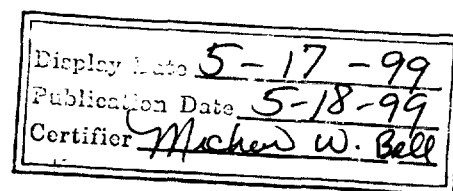 Display Date 5-17-99
Publication Date 5-18-99
Certifier W. Bell